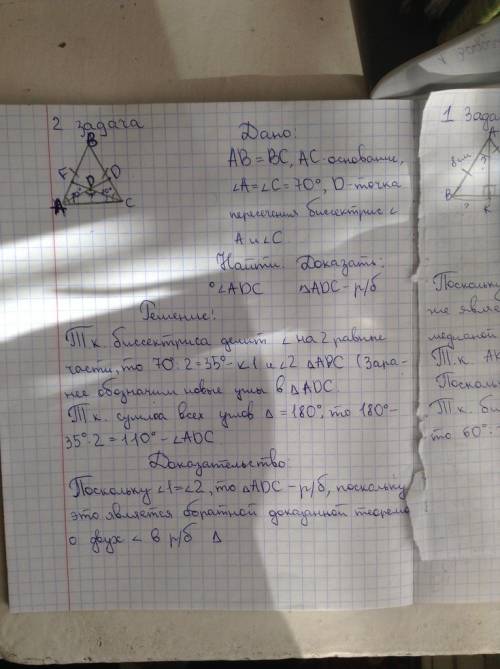 2 задача
B
F D
D
A C
Дано:
AB = BC, AC-основание,
∠A=∠C=70°, D-точка
пересечения биссектрис ∠
A и ∠C
Найти: Доказать:
°∠ADC ΔADC-р/б
Решение:
Т.к. биссектриса делит ∠ на 2 равные
части, то 70°:2=35°-∠1 и ∠2 ΔADC (Зара-
нее обозначим новые углы в ΔADC
Т.к. сумма всех углов Δ =180°, то 180°-
35°·2 = 110° - ∠ADC
Доказательство:
Поскольку ∠1=∠2, то ΔADC - р/б, поскольку
это является боратной доказанной теореме
о двух ∠ в р/б Δ
1 Зада
A
8см
B
? K
Поскольку
же явля
медианой
Т.к. AK
Посколь
Т.к. би
то 60°: